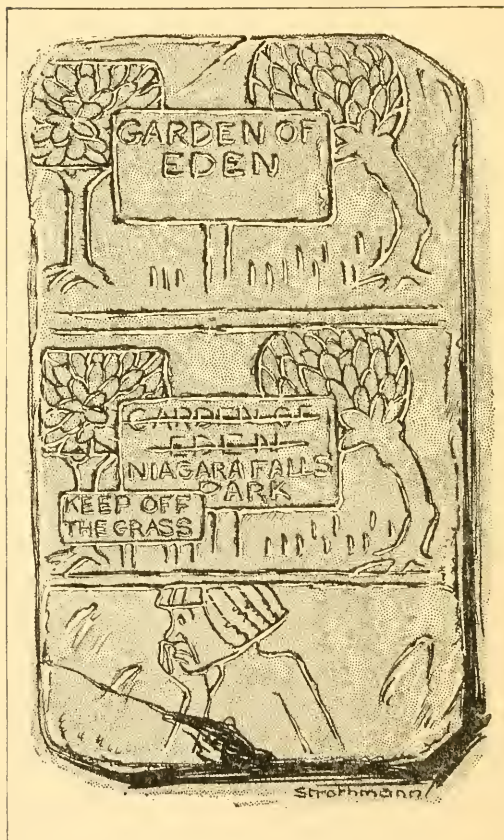 GARDEN OF
EDEN
GARDEN OF
EDEN
NIAGARA FALLS
PARK
KEEP OFF
THE GRASS
Strothmann